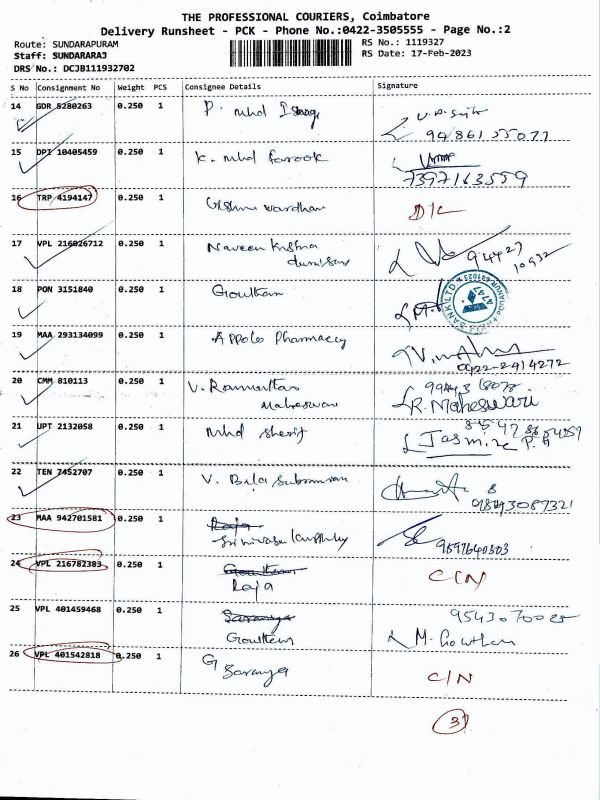 THE PROFESSIONAL COURIERS, Coimbatore
Delivery Runsheet - PCK - Phone No.:0422-3505555 - Page No.:2
Route: SUNDARAPURAM RS No.: 1119327
Staff: SUNDARARAJ RS Date: 17-Feb-2023
DRS No.: DCJB111932702
S No Consignment No Weight PCS Consignee Details Signature
14 GDR 5280263 0.250 1 P. Mhd
15 DPI 10405459 0.250 1 K. Mhd farook
7397163559
16 TRP 4194147 0.250 1 Vishnu vardhan D/L
17 VPL 216026712 0.250 1 Naveen Krishna
94427
10932
18 PON 3151840 0.250 1 Goutham
19 MAA 293134099 0.250 1 Appolo Pharmacy
0422-2914272
20 CMM 810113 0.250 1 V.
Maheswari R. Maheswari
21 UPT 2132058 0.250 1 Mhd sherif
Jasmine P. A
22 TEN 7452707 0.250 1 V. Bala Subramanian
9894308 7321
23 MAA 942701581 0.250 1 Raja
9597640303
24 VPL 216782383 0.250 1 Goutham C/N
Raja
25 VPL 401459468 0.250 1 Saranya
Goutham M. Gowtham
26 VPL 401542818 0.250 1 G
Saranya C/N
3